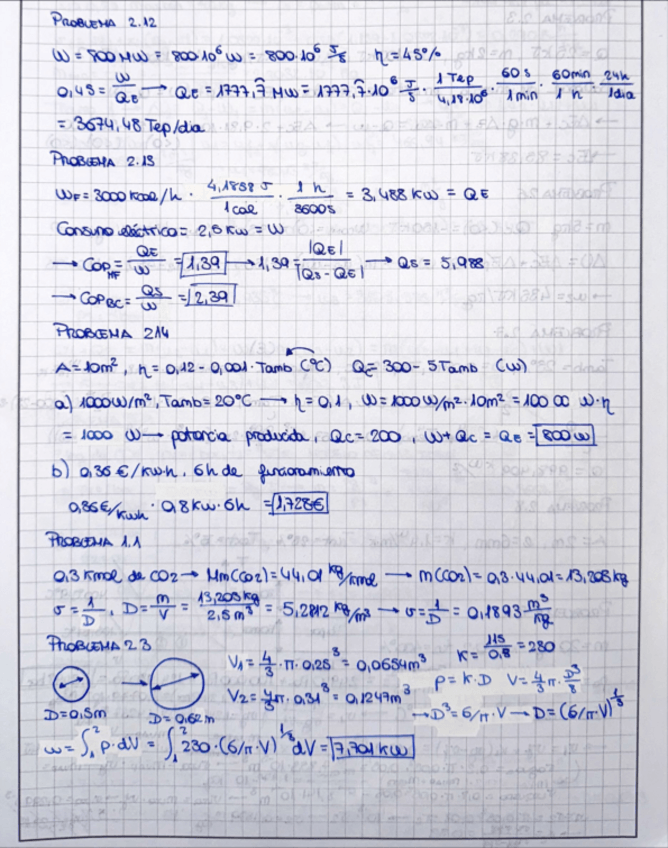 PROBLEMA 2.12
W = 800 MW = 800·10⁶ W = 800·10⁶ J/s η = 45%
0,45 = W/QE → QE = 1777,7 MW = 1777,7·10⁶ J/s · 1 Tep/4,18·10⁶ · 60s/1min · 60min/1h · 24h/1dia
= 3674,48 Tep/dia
PROBLEMA 2.13
WF = 3000 Kcal/h · 4,1858 J/1cal · 1h/3600s = 3,488 KW = QE
Consumo eléctrico = 2,5 KW = W
→ COP MF = QE/W = 1,39 → 1,39 = |QE|/|QS - QE| → QS = 5,988
→ COP BC = QS/W = 2,39
PROBLEMA 2.14
A = 10m², η = 0,12 - 0,001·Tamb (ºC) Q = 300 - 5Tamb (W)
a) 1000W/m², Tamb = 20°C → η = 0,1, W = 1000 W/m²·10m² = 10000 W·η
= 1000 W → potencia producida, QC = 200, W + QC = QE = 800W
b) 0,36 €/kwh. 6h de funcionamiento
0,36€/Kwh · 0,8Kw·6h = 1,728€
PROBLEMA 1.1
0,3 Kmol de CO2 → Mm(CO2) = 44,01 kg/kmol → m(CO2) = 0,3·44,01 = 13,203kg
v = 1/D, D = m/V = 13,203kg/2,5m³ = 5,2812 kg/m³ → v = 1/D = 0,1893 m³/kg
PROBLEMA 2.3
V1 = 4/3·π·0,25³ = 0,0654m³ K = 115/0,5 = 230
V2 = 4/3π·0,31³ = 0,1247m³ P = K·D V = 4/3π·D³/8
D = 0,5m D = 0,62m → D³ = 6/π·V → D = (6/π·V)^1/3
W = ∫₁² P·dV = ∫₁² 230·(6/π·V)^1/3 dV = 7,701 KW